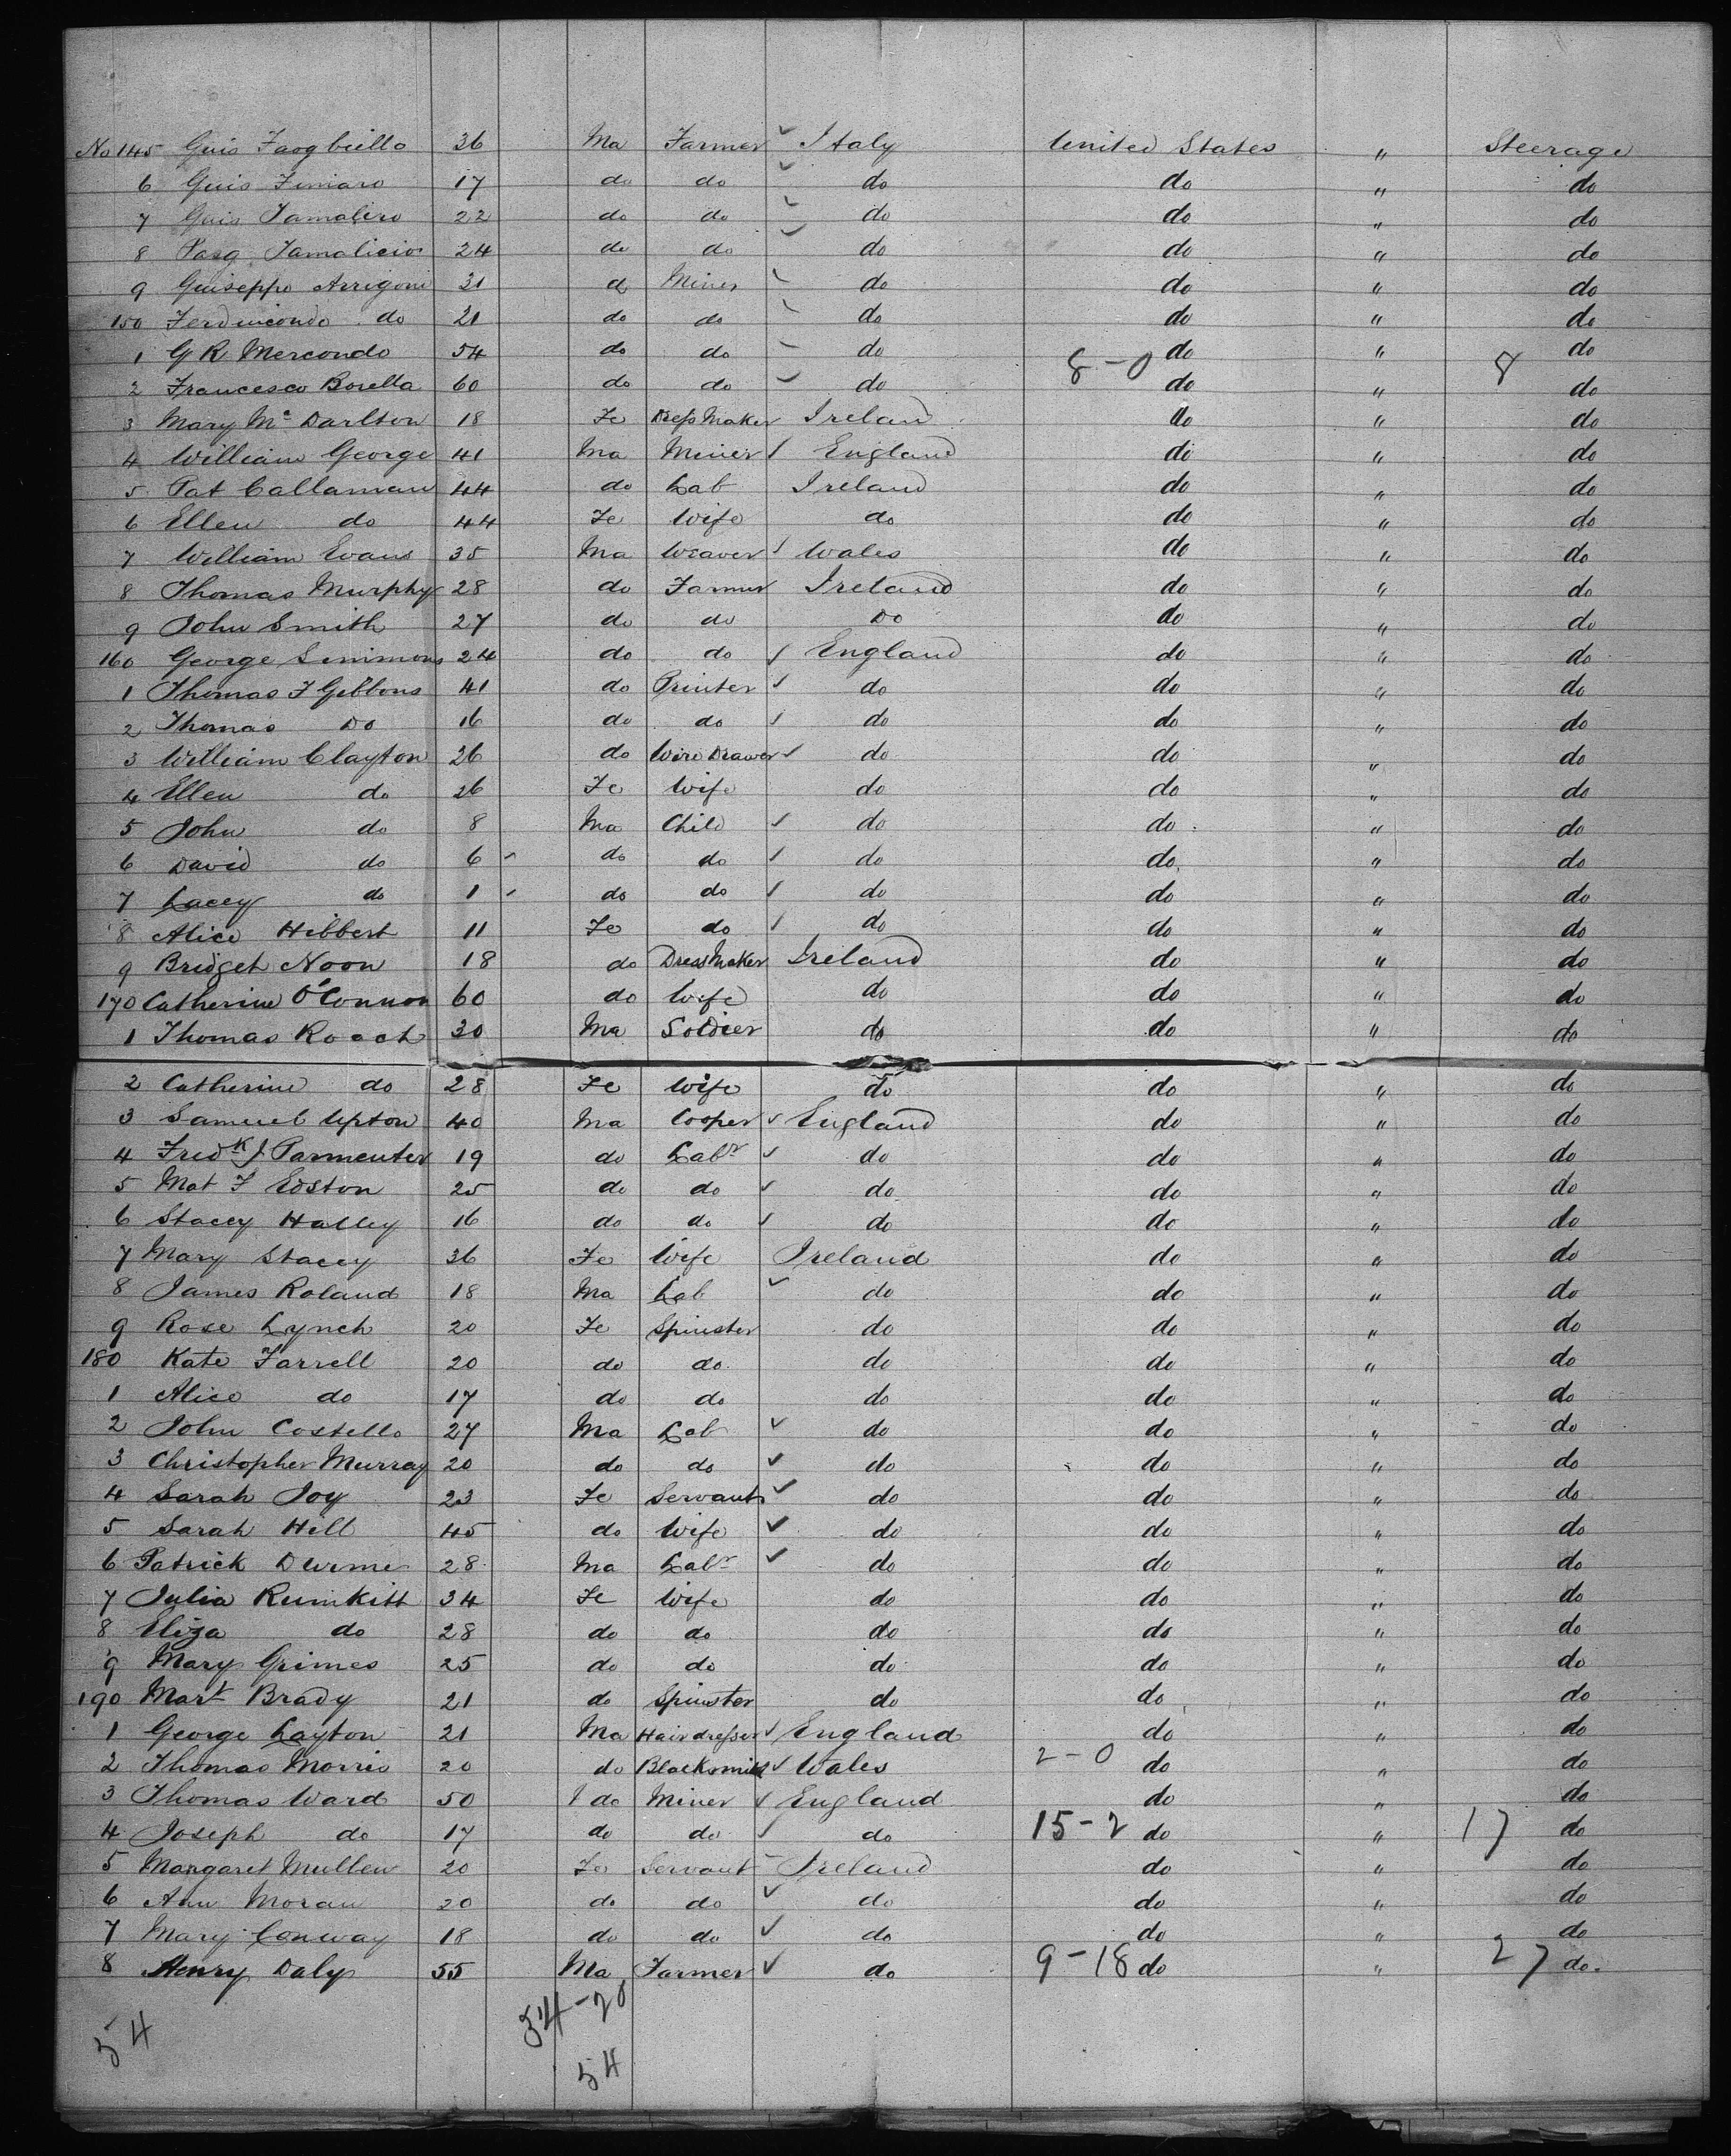 No 145 Guis Faogbiello 36 Ma Farmer ✓ Italy United States " Steerage
6 Guis Finiaro 17 do do ✓ do do " do
7 Guis Tamaliro 22 do do ✓ do do " do
8 Pasq. Tamalicio 24 do do ✓ do do " do
9 Guiseppo Arrigoni 31 d Miner do do " do
150 Ferdincondo do 21 do do do do " do
1 G R Mercondo 54 do do do do " do
8-0 8
2 Francesco Borella 60 do do ✓ do do " do
3 Mary Mc Darlton 18 Fe Dress Maker Ireland do " do
4 William George 41 Ma Miner ✓ England do " do
5 Pat Callaman 44 do Lab Ireland do " do
6 Ellen do 44 Fe Wife do do " do
7 William Evans 35 Ma Weaver ✓ Wales do " do
8 Thomas Murphy 28 do Farmer Ireland do " do
9 John Smith 27 do do Do do " do
160 George Simmons 24 do do ✓ England do " do
1 Thomas F Gibbons 41 do Printer ✓ do do " do
2 Thomas Do 16 do do ✓ do do " do
3 William Clayton 26 do Wire Drawer ✓ do do " do
4 Ellen do 26 Fe Wife do do " do
5 John do 8 Ma Child ✓ do do " do
6 David do 6 do do ✓ do do " do
7 Lacey do 1 do do ✓ do do " do
8 Alice Hibbert 11 Fe do ✓ do do " do
9 Bridget Noon 18 do Dress Maker Ireland do " do
170 Catherine O'Connor 60 do Wife do do " do
1 Thomas Roach 30 Ma Soldier do do " do
2 Catherine do 28 Fe Wife do do " do
3 Samuel Upton 40 Ma Cooper ✓ England do " do
4 Fredk J. Parmenter 19 do Labr ✓ do do " do
5 Mat F Edston 25 do do ✓ do do " do
6 Stacey Halley 16 do do ✓ do do " do
7 Mary Stacey 36 Fe Wife Ireland do " do
8 James Roland 18 Ma Lab ✓ do do " do
9 Rose Lynch 20 Fe Spinster do do " do
180 Kate Farrell 20 do do do do " do
1 Alice do 17 do do do do " do
2 John Costello 27 Ma Lab ✓ do do " do
3 Christopher Murray 20 do do ✓ do do " do
4 Sarah Joy 23 Fe Servant ✓ do do " do
5 Sarah Hill 45 do Wife ✓ do do " do
6 Patrick Durme 28 Ma Labr ✓ do do " do
7 Julia Rumkitt 34 Fe Wife do do " do
8 Eliza do 28 do do do do " do
9 Mary Grimes 25 do do do do " do
190 Mart Brady 21 do Spinster do do " do
1 George Layton 21 Ma Hairdresser ✓ England do " do
2 Thomas Morris 20 do Blacksmith ✓ Wales 2-0 do " do
3 Thomas Ward 50 do Miner ✓ England do " do
4 Joseph do 17 do do ✓ do 15-2 do " 17 do
5 Margaret Mullen 20 Fe Servant Ireland do " do
6 Ann Moran 20 do do ✓ do do " do
7 Mary Conway 18 do do ✓ do do " do
8 Henry Daly 55 Ma Farmer ✓ do 9-18 do " 27 do.
54 34-20
54